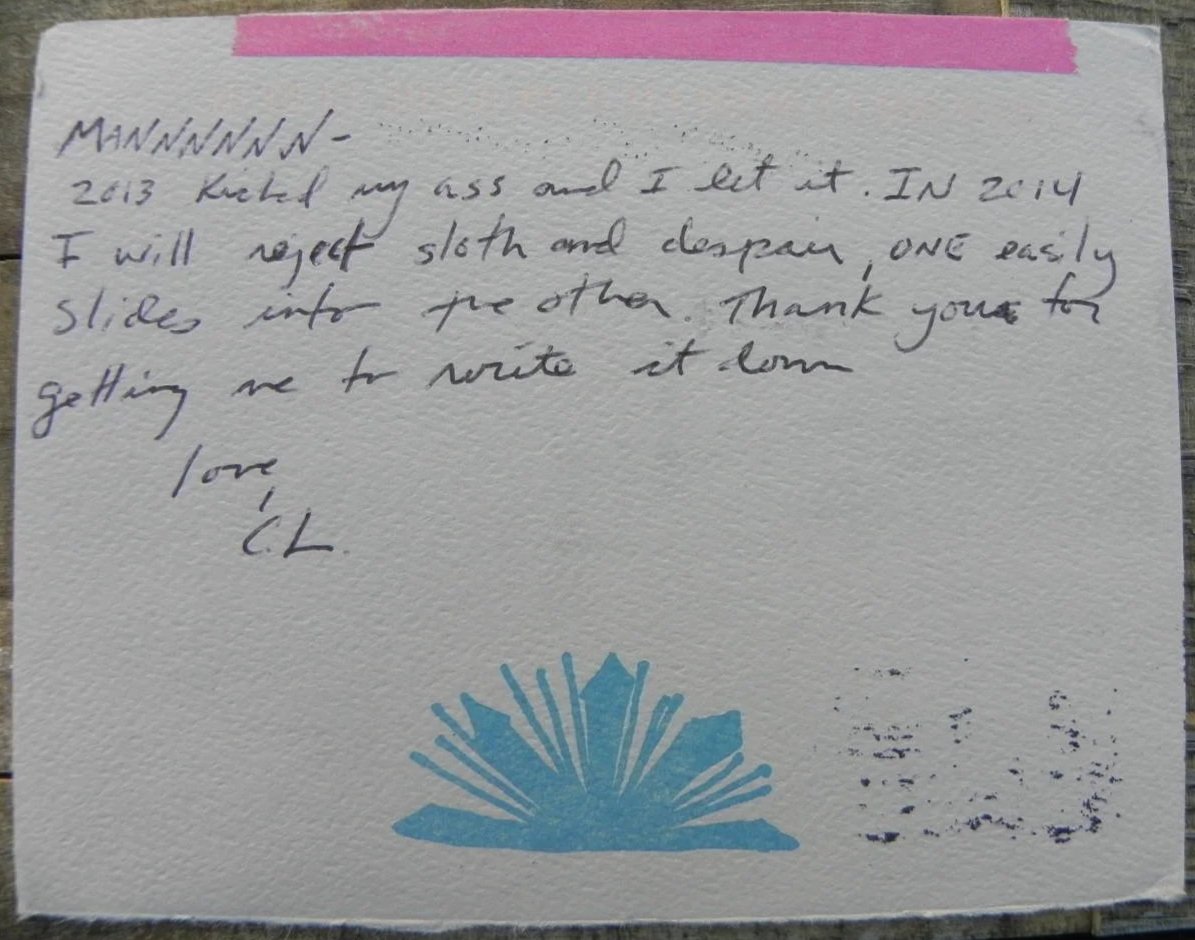 MANNNNNN-
2013 Kicked my ass and I let it. IN 2014
I will reject sloth and despair, ONE easily
slides into the other. Thank you for
getting me to write it down
love,
C.L.